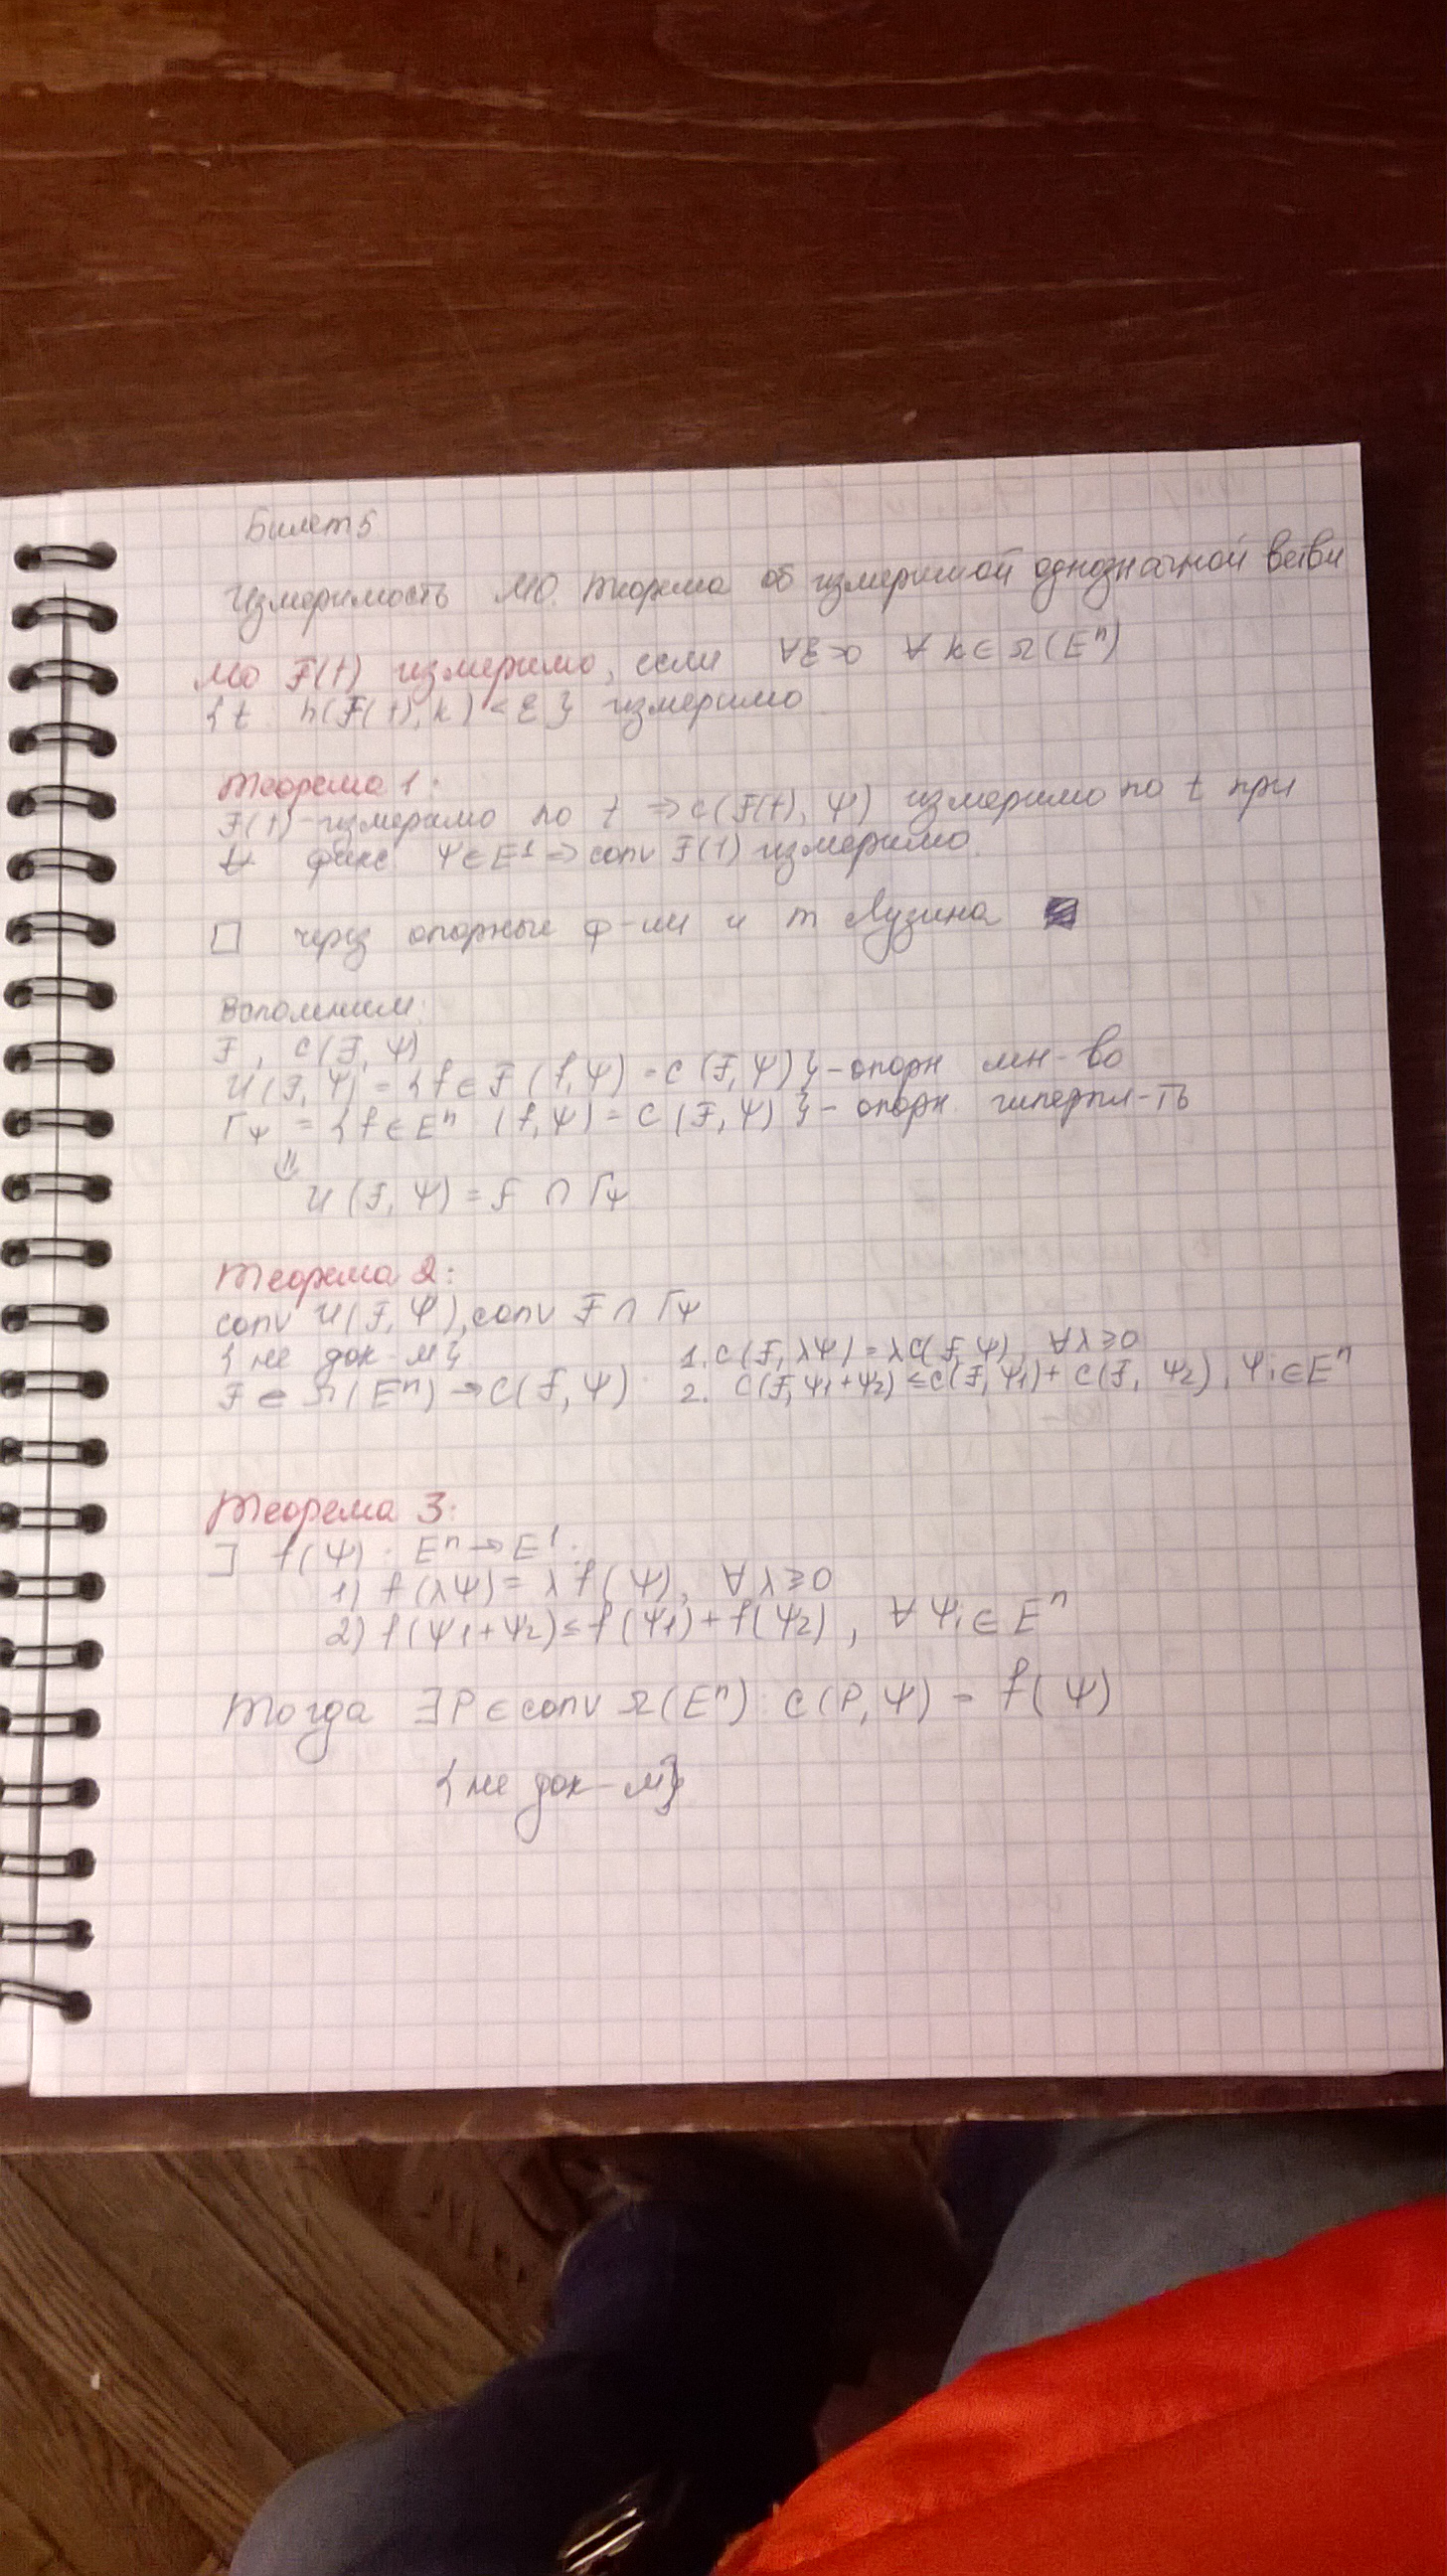 Билет 5
Измеримость МО. Теорема об измеримой однозначной ветви
МО F(t) измеримо, если ∀ε>0 ∀ K∈Ω(Eⁿ)
{t h(F(t), K) < ε} измеримо
Теорема 1:
F(t)-измеримо по t ⇒ c(F(t), Ψ) измеримо по t при
∀ фикс. Ψ∈E¹ ⇒ conv F(t) измеримо.
□ через опорные ф-ии и т Лузина
Вспомним:
F, c(F, Ψ)
U(F, Ψ) = {f∈F (f,Ψ) = c(F,Ψ)} - опорн мн-во
Γψ = {f∈Eⁿ (f,Ψ) = c(F,Ψ)} - опорн. гиперпл-ть
⇓
U(F, Ψ) = F ∩ Γψ
Теорема 2:
conv U(F, Ψ), conv F ∩ Γψ
{не док-м}
1. c(F, λΨ) = λc(F,Ψ), ∀λ≥0
F ∈ Ω(Eⁿ) → c(F, Ψ)
2. c(F, Ψ₁+Ψ₂) ≤ c(F,Ψ₁) + c(F, Ψ₂), Ψi∈Eⁿ
Теорема 3:
] f(Ψ): Eⁿ→E¹:
1) f(λΨ) = λ f(Ψ), ∀ λ≥0
2) f(Ψ₁+Ψ₂) ≤ f(Ψ₁) + f(Ψ₂), ∀ Ψi ∈ Eⁿ
Тогда ∃P∈conv Ω(Eⁿ) c(P,Ψ) = f(Ψ)
{не док-м}